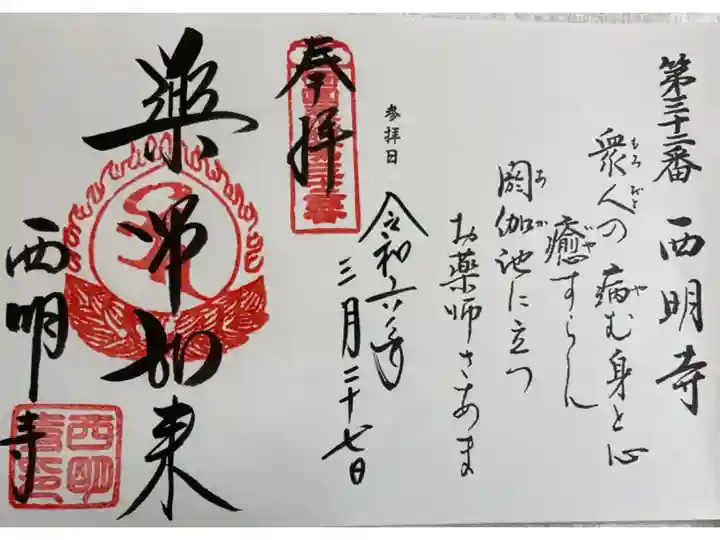 第三十二番 西明寺
衆人の病む身と心
もろびと や
癒すらん
いや
閼伽池に立つ
あか
お薬師さあま
参拝日
令和六年
三月二十七日
奉拝
薬師如来
西明寺